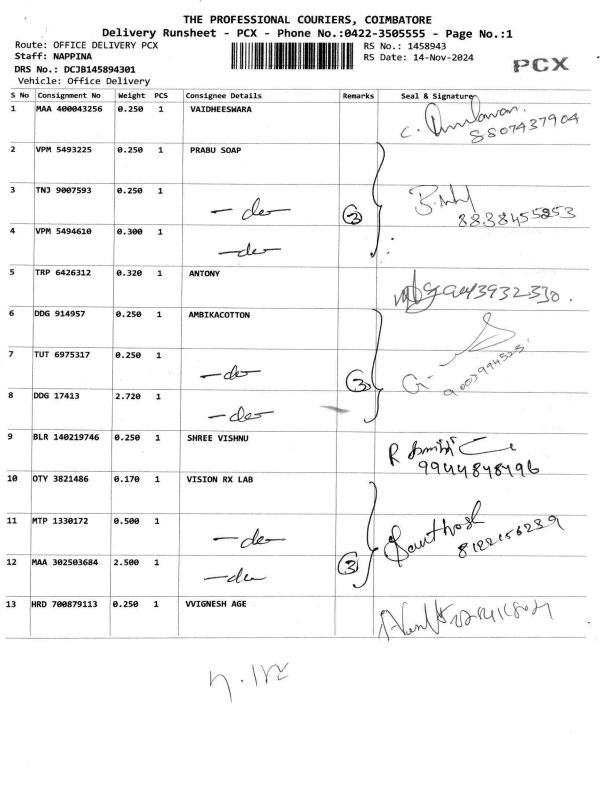 THE PROFESSIONAL COURIERS, COIMBATORE
Delivery Runsheet - PCX - Phone No.:0422-3505555 - Page No.:1
Route: OFFICE DELIVERY PCX RS No.: 1458943
Staff: NAPPINA RS Date: 14-Nov-2024
PCX
DRS No.: DCJB145894301
Vehicle: Office Delivery
S No Consignment No Weight PCS Consignee Details Remarks Seal & Signature
1 MAA 400043256 0.250 1 VAIDHEESWARA
8807437904
2 VPM 5493225 0.250 1 PRABU SOAP
3 TNJ 9007593 0.250 1 - do - 3 8838455253
4 VPM 5494610 0.300 1 - do -
5 TRP 6426312 0.320 1 ANTONY
6 DDG 914957 0.250 1 AMBIKACOTTON
7 TUT 6975317 0.250 1 - do - 3
8 DDG 17413 2.720 1 - do -
9 BLR 140219746 0.250 1 SHREE VISHNU
9944848496
10 OTY 3821486 0.170 1 VISION RX LAB
11 MTP 1330172 0.500 1 - do - Santhosh
8122156239
12 MAA 302503684 2.500 1 - do - 3
13 HRD 700879113 0.250 1 VVIGNESH AGE